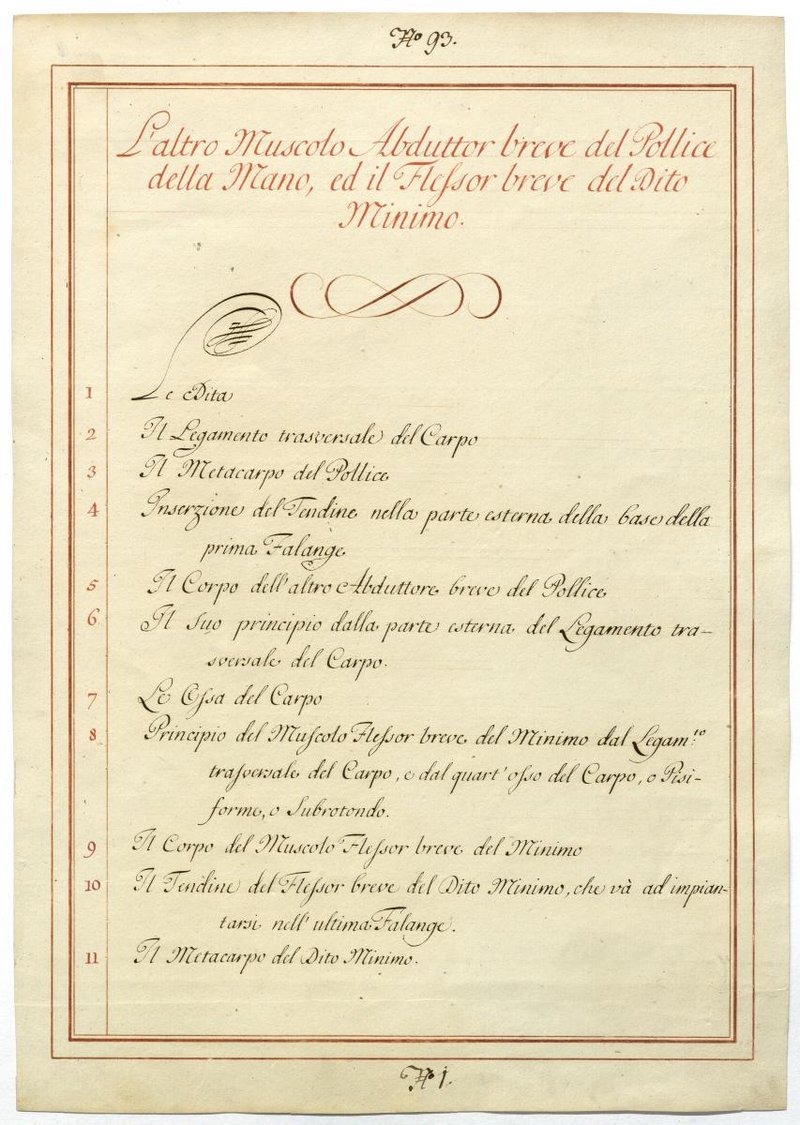 No 93.
L'altro Muscolo Abduttor breve del Pollice
della Mano, ed il Flessor breve del Dito
Minimo.
1 Le Dita
2 Il Legamento trasversale del Carpo
3 Il Metacarpo del Pollice
4 Inserzione del Tendine nella parte esterna della base della
prima Falange
5 Il Corpo dell'altro Abduttore breve del Pollice
6 Il Suo principio dalla parte esterna del Legamento tra-
sversale del Carpo.
7 Le Ossa del Carpo
8 Principio del Muscolo Flessor breve del Minimo dal Legam.to
trasversale del Carpo, e dal quart'osso del Carpo, o Pisi-
forme, o Subrotondo.
9 Il Corpo del Muscolo Flessor breve del Minimo
10 Il Tendine del Flessor breve del Dito Minimo, che và ad impian-
tarsi nell'ultima Falange.
11 Il Metacarpo del Dito Minimo.
No 1.